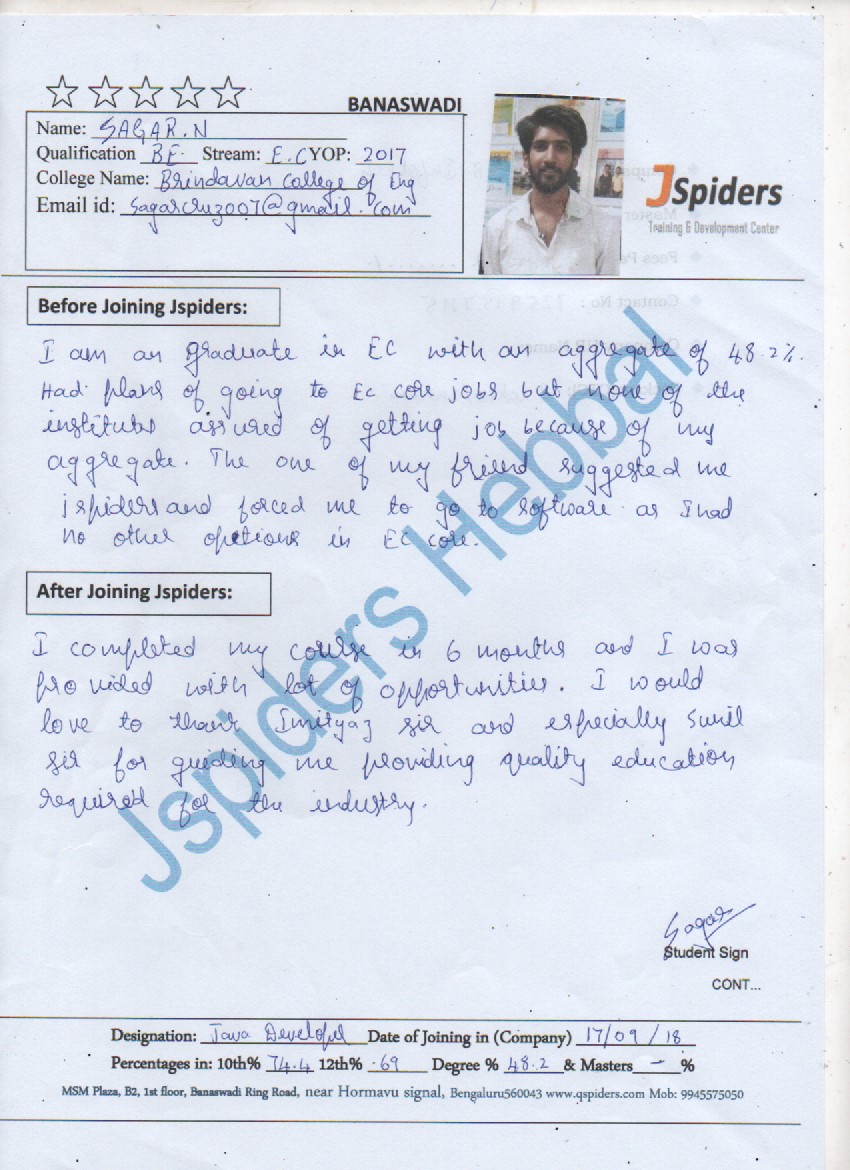 BANASWADI
Name: SAGAR.N
Qualification BE. Stream: E.C YOP: 2017
College Name: Brindavan College of Eng
Email id: sagarcruz007@gmail.com
JSpiders
Training & Development Center
Before Joining Jspiders:
I am an graduate in EC with an aggregate of 48.2%.
Had plans of going to Ec core jobs but none of the
institutes assured of getting job because of my
aggregate. The one of my friend suggested me
jspiders and forced me to go to software as I had
no other options in EC core.
After Joining Jspiders:
I completed my course in 6 months and I was
provided with lot of opportunities. I would
love to thank Imityaz sir and especially Sunil
sir for guiding me providing quality education
required for the industry.
Jspiders Hebbal
Sagar
Student Sign
CONT...
Designation: Java Developer Date of Joining in (Company) 17/09/18
Percentages in: 10th% 74.4 12th% .69 Degree % 48.2 & Masters - %
MSM Plaza, B2, 1st floor, Banaswadi Ring Road, near Hormavu signal, Bengaluru560043 www.qspiders.com Mob: 9945575050